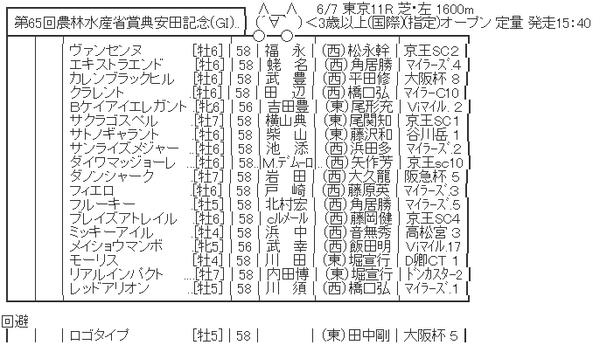 第65回農林水産省賞典安田記念(GI)．． ∧＿∧ 6/7 東京11R 芝・左 1600m
( ´∀｀) ＜3歳以上(国際)(指定)オープン 定量 発走15:40
ヴァンセンヌ [牡6] | 58 | 福 永 | (西)松永幹 | 京王SC2
エキストラエンド [牡6] | 58 | 蛯 名 | (西)角居勝 | マイラーズ.4
カレンブラックヒル [牡6] | 58 | 武 豊 | (西)平田修 | 大阪杯 8
クラレント [牡6] | 58 | 田 辺 | (西)橋口弘 | マイラーC10
Bケイアイエレガント [牝6] | 56 | 吉田豊 | (東)尾形充 | Viマイル. 2
サクラゴスペル [牡7] | 58 | 横山典 | (東)尾関知 | 京王SC1
サトノギャラント [牡6] | 58 | 柴 山 | (東)藤沢和 | 谷川岳 1
サンライズメジャー ..[牡6] | 58 | 池 添 | (西)浜田多 | マイラーズ.2
ダイワマッジョーレ ..[牡6] | 58..| M.デムーロ | (西)矢作芳 | 京王sc10
ダノンシャーク [牡7] | 58 | 岩 田 | (西)大久龍 | 阪急杯 5
フィエロ [牡6] | 58 | 戸 崎 | (西)藤原英 | マイラーズ.3
フルーキー [牡5] | 58 | 北村宏 | (西)角居勝 | マイラーズ.5
ブレイズアトレイル [牡6] | 58 | cルメール | (西)藤岡健 | 京王SC4
ミッキーアイル [牡4] | 58 | 浜 中 | (西)音無秀 | 高松宮 3
メイショウマンボ [牝5] | 56 | 武 幸 | (西)飯田明 | Viマイル.17
モーリス [牡4] | 58 | 川 田 | (東)堀宣行 | D卿CT 1
リアルインパクト ...[牡7] | 58 | 内田博 | (東)堀宣行 | ドンカスター2
レッドアリオン ...[牡5] | 58 | 川 須 | (西)橋口弘 | マイラーズ.1
回避
ロゴタイプ [牡5] | 58 | (東)田中剛 | 大阪杯 5